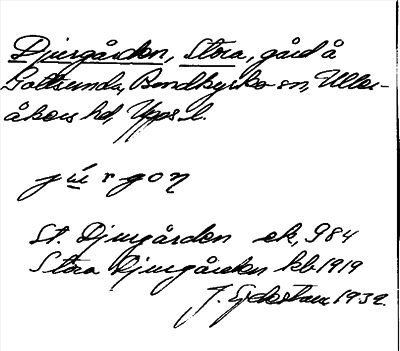 Djurgården, Stora, gård å
Gottsunda, Bondkyrko sn, Uller-
åkers hd, Upps. l.
júrgoη
St. Djurgården ek, 984
Stora Djurgården kb 1919
J. Sjdestam 1932.